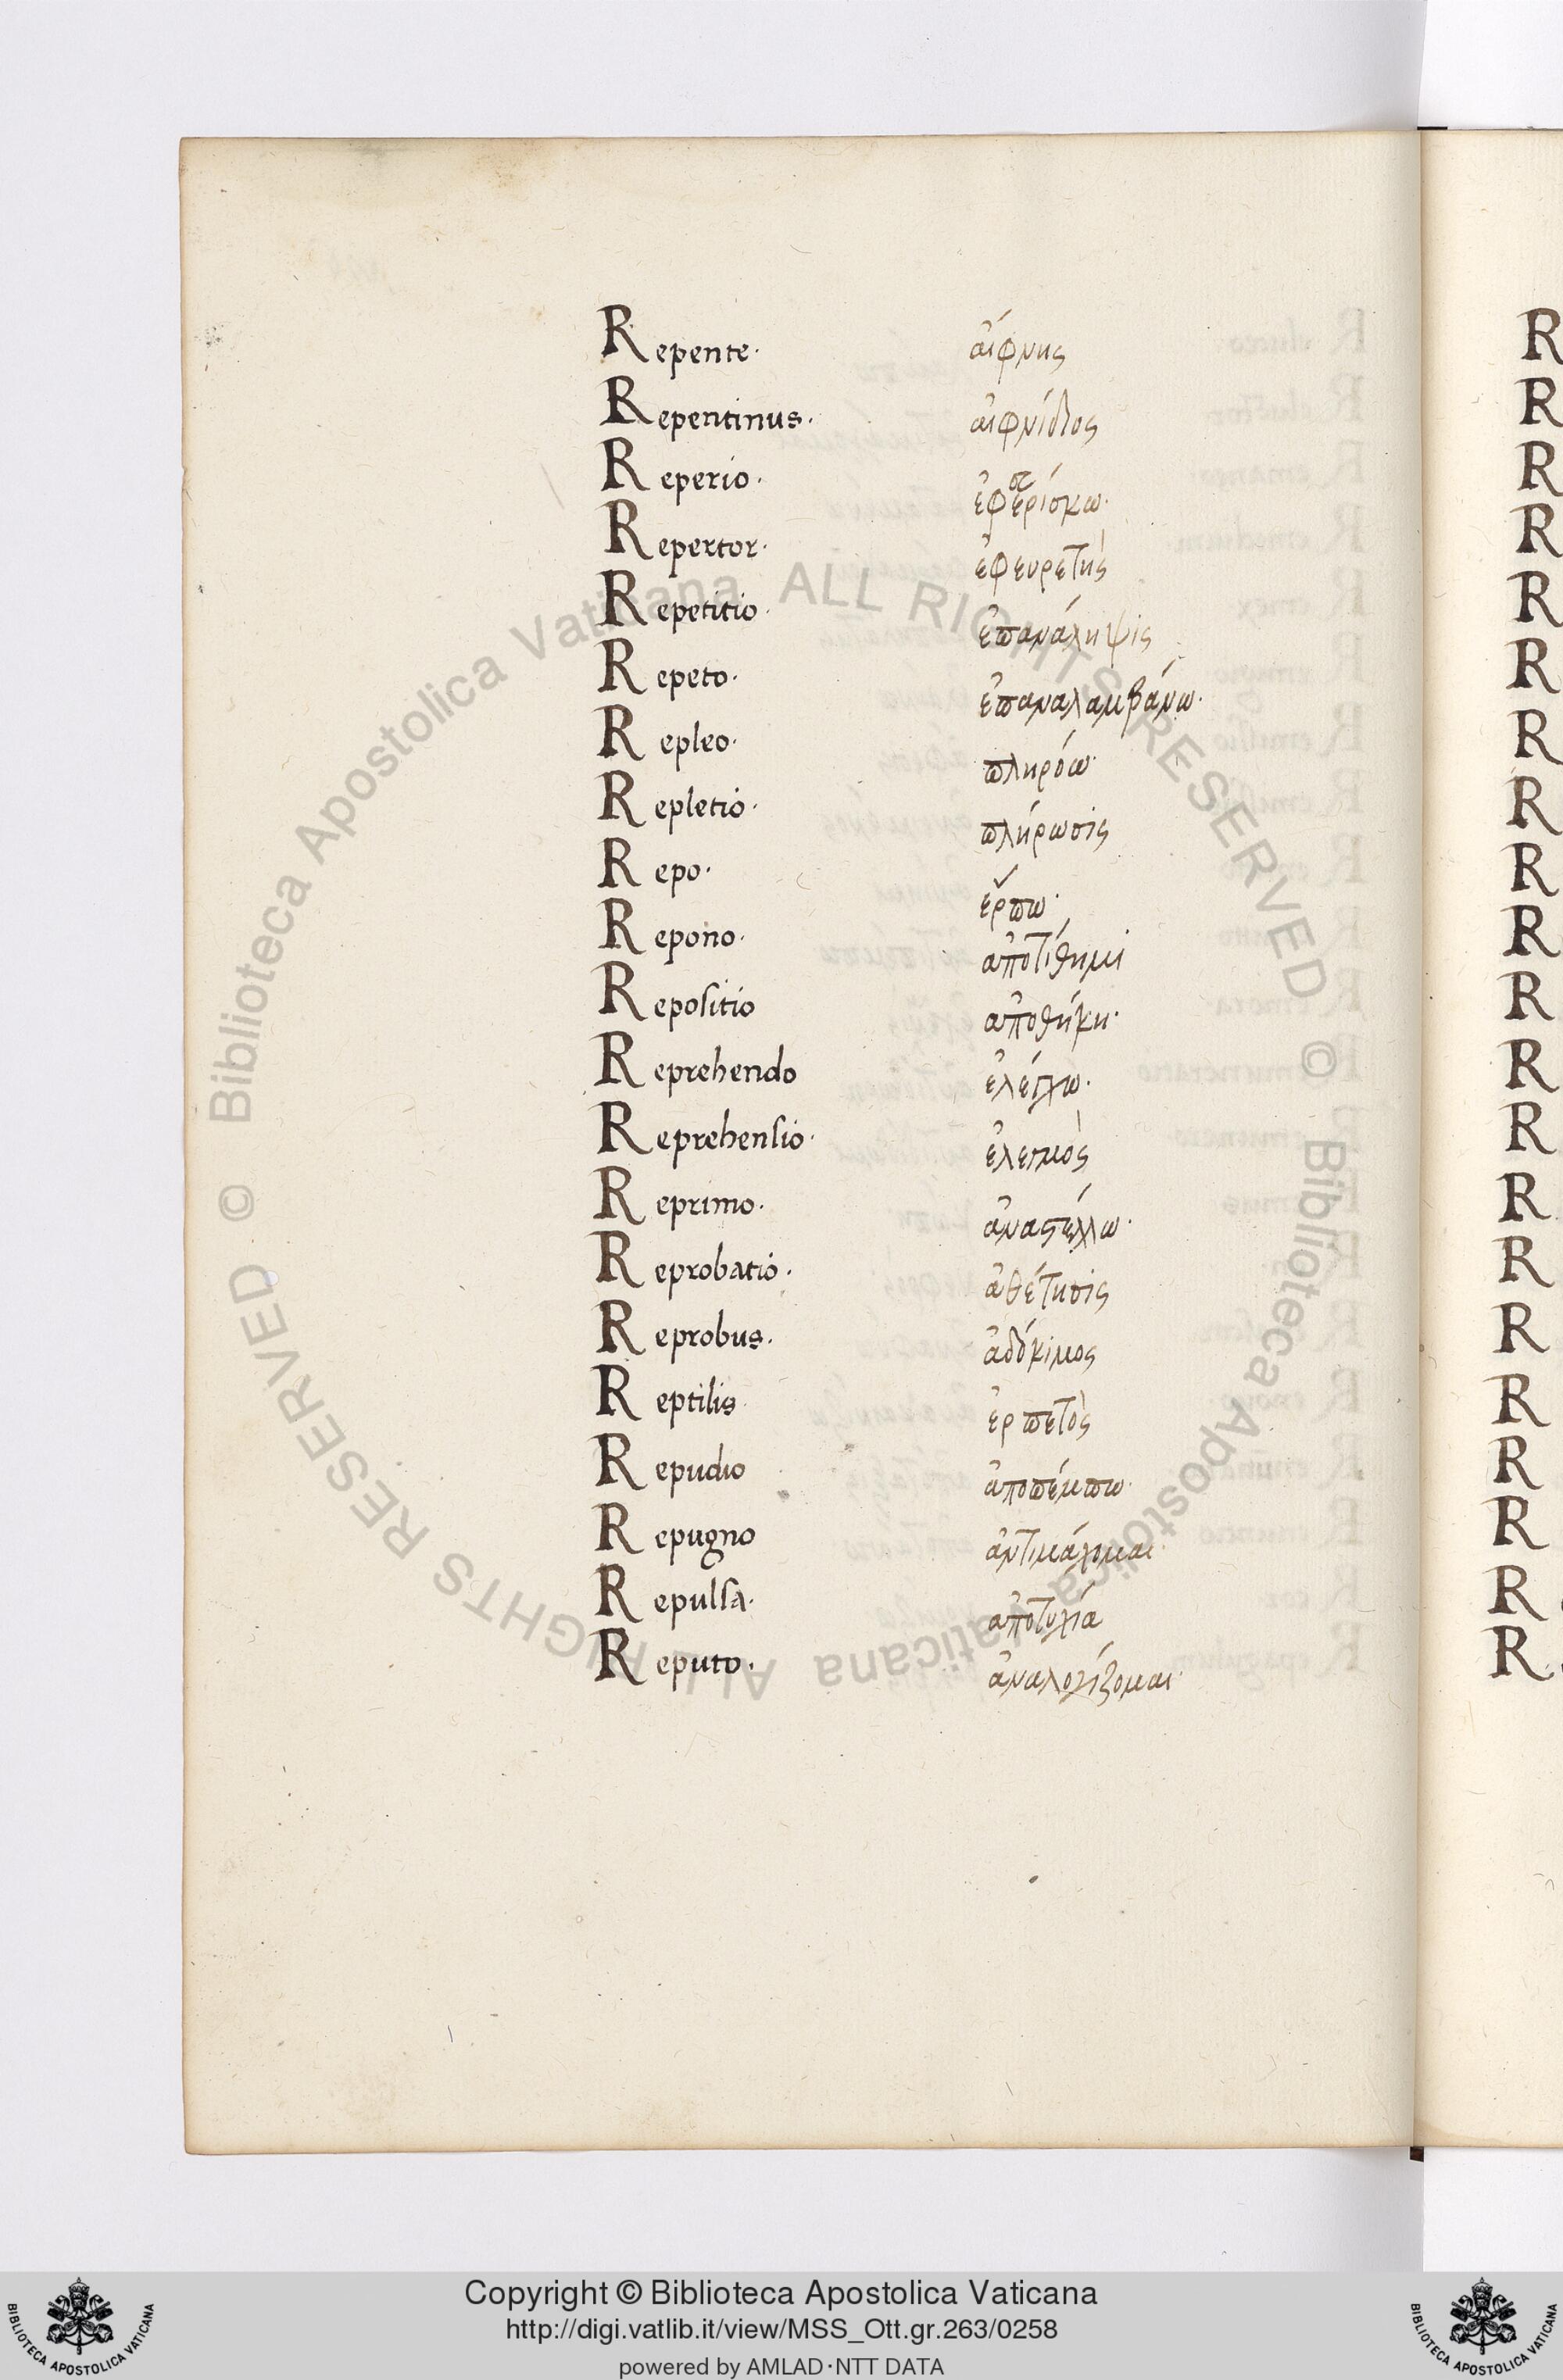 Repente· αἴφνης
Repentinus· αἰφνίδιος
Reperio· ἐφερίσκω·
Repertor· ἐφευρετὴς
Repetitio· ἐπανάληψις
Repeto· ἐπαναλαμβάνω·
Repleo· πληρόω·
Repletio· πλήρωσις
Repo· ἕρπω·
Repono· ἀποτίθημι
Repositio ἀποθήκη·
Reprehendo ἐλέγχω·
Reprehensio· ἐλεγμὸς
Reprimo· ἀναστέλλω·
Reprobatio· ἀθέτησις
Reprobus· ἀδόκιμος
Reptilis ἑρπετὸς
Repudio ἀποπέμπω·
Repugno ἀντιμάχομαι·
Repulsa· ἀποτυχία
Reputo· ἀναλογίζομαι·
Biblioteca Apostolica Vaticana ALL RIGHTS RESERVED ©
Biblioteca Apostolica Vaticana ALL RIGHTS RESERVED ©
Copyright © Biblioteca Apostolica Vaticana
http://digi.vatlib.it/view/MSS_Ott.gr.263/0258
powered by AMLAD·NTT DATA
BIBLIOTECA APOSTOLICA VATICANA
BIBLIOTECA APOSTOLICA VATICANA